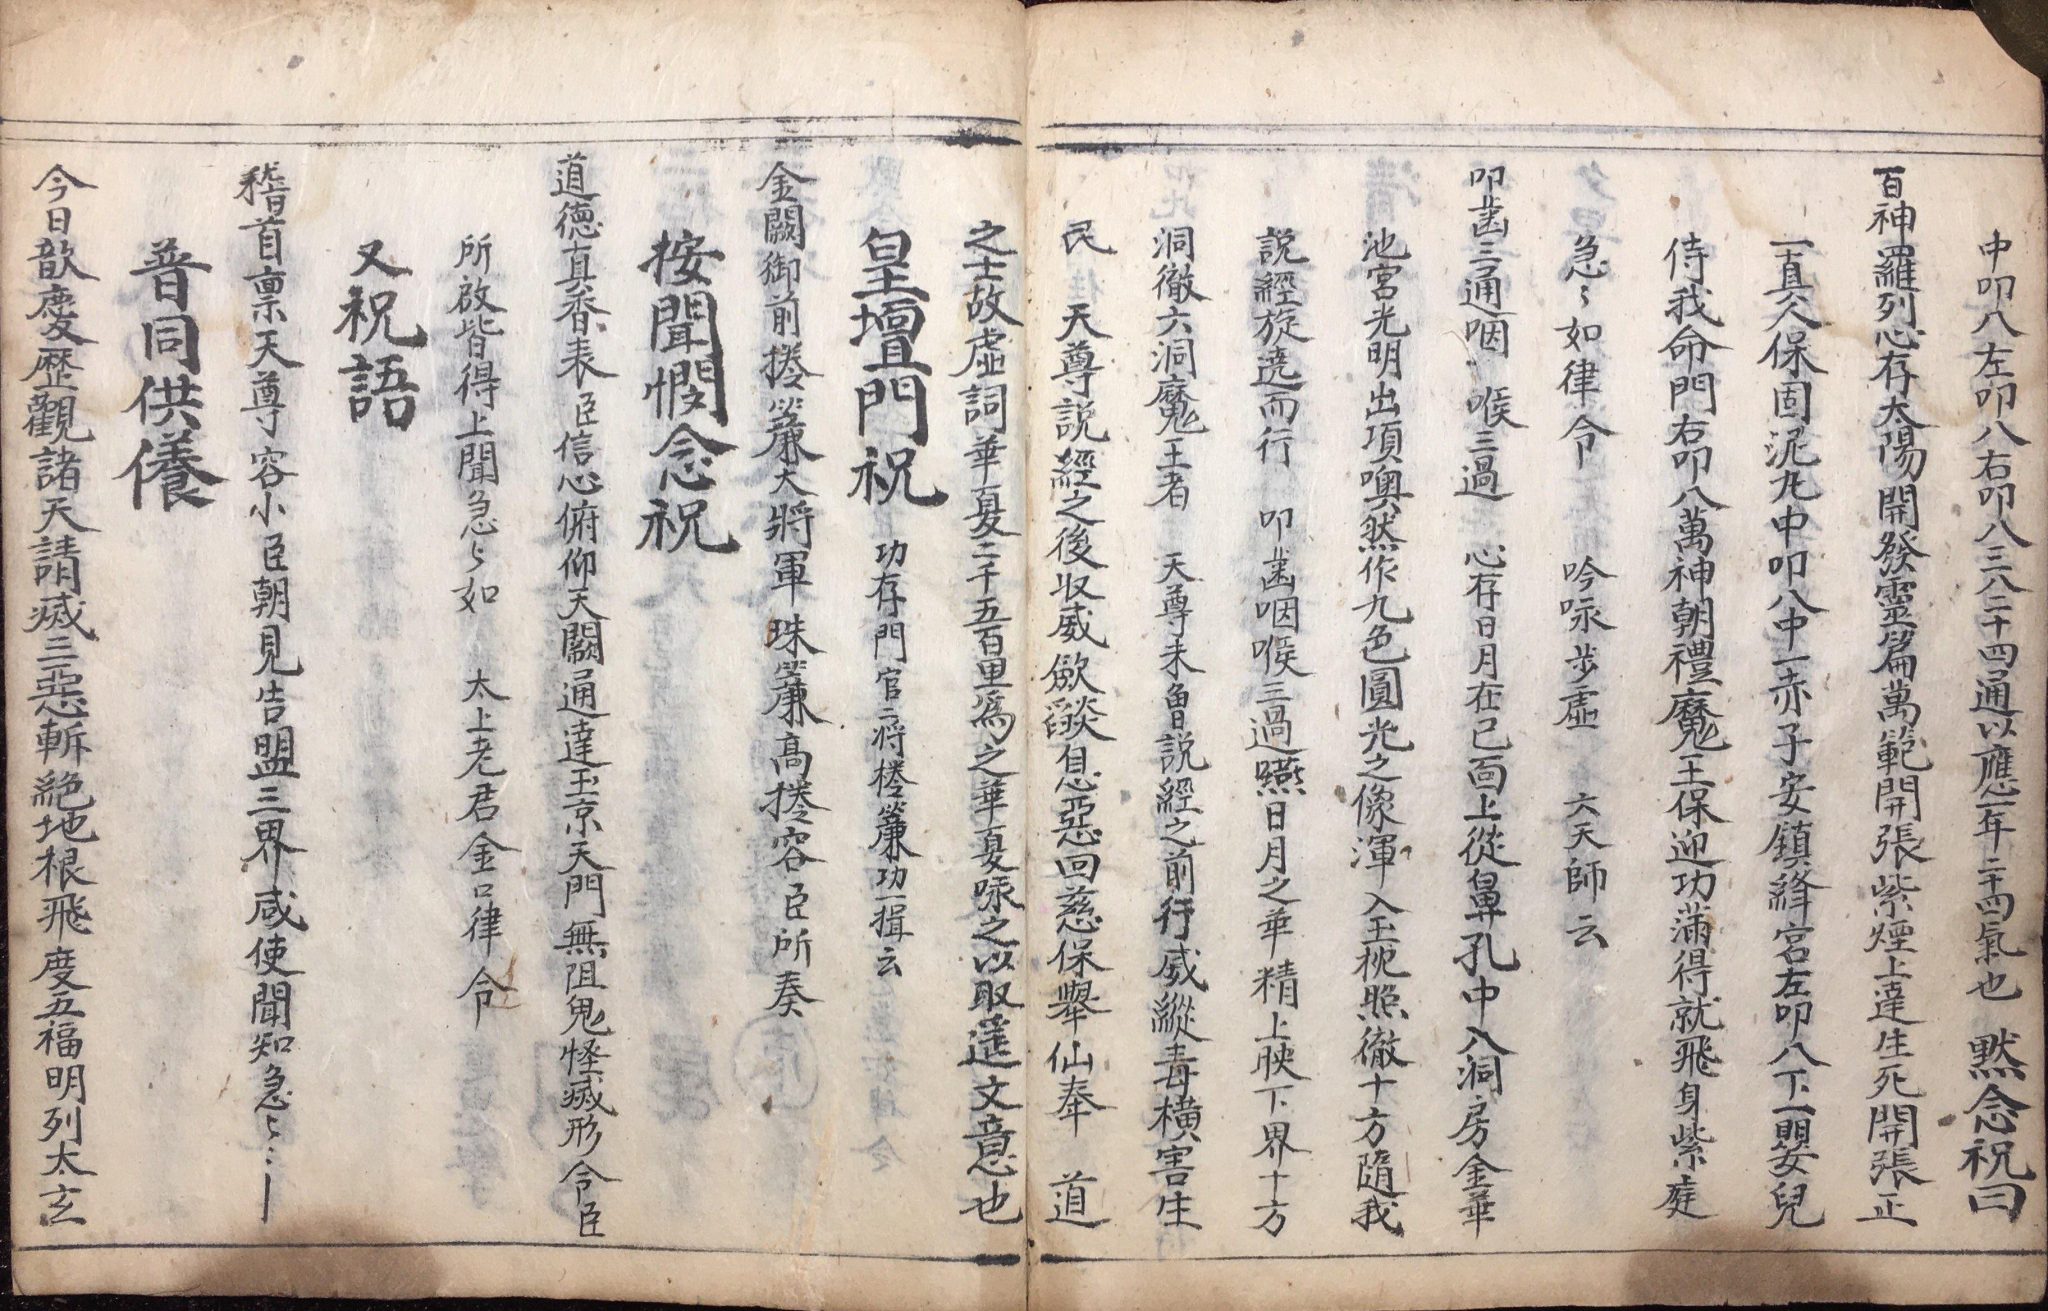 中叩八左叩八右叩八三八二十四通以應一年二十四氣也　默念祝曰
百神羅列心存太陽開發靈篇萬範開張紫煙上達生死開張正
一真人保固泥丸中叩八中一赤子安鎮絳宮左叩八下一嬰兒
侍我命門右叩八萬神朝禮魔王保迎功滿得就飛身紫庭
急〻如律令　吟咏步虛　六天師云
叩齒三通咽　喉三過　心存日月在已面上從鼻孔中入洞房金華
池宮光明出項噢然作九色圓光之像渾入玉枕照徹十方隨我
說經旋遶而行　叩齒咽喉三過嚥日月之華精上映下界十方
洞徹六洞魔王者　天尊未曾説經之前行威縱毒橫害生
民　天尊説經之後收威歛談息惡回慈保舉仙奉　道
之士故虛詞華夏二千五百里爲之華夏咏之以取遥文意也
皇壇門祝　功存門官二將捲簾功一揖云
金闕御前捲簾大將軍珠簾高捲容臣所奏
按聞憫念祝
道德真香表臣信心俯仰天闕通達玉京天門無阻鬼怪滅形令臣
所啟皆得上聞急〻如　太上老君金口律令
又祝語
稽首禀天尊容小臣朝見告盟三界咸使聞知急〻
普同供養
今日歆慶歷觀諸天請滅三惡斬絕地根飛度五福明列太玄